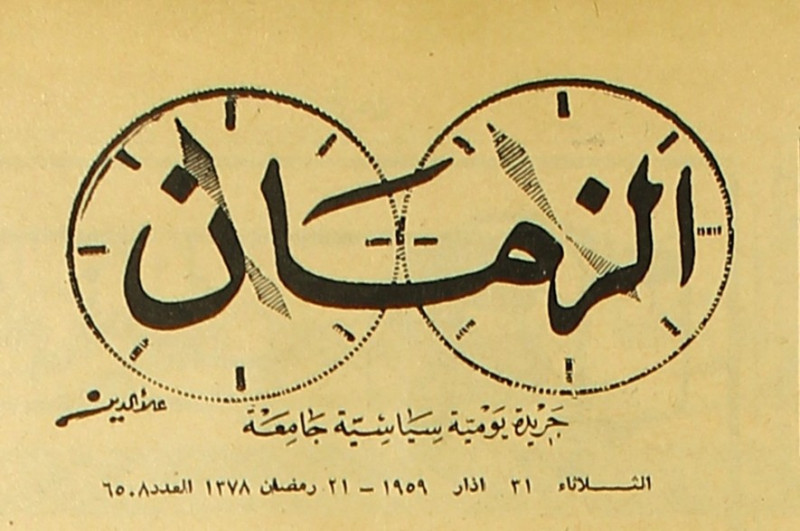 الزمان
علاءالدين
جريدة يومية سياسية جامعة
الثلاثاء ٣١ اذار ١٩٥٩ - ٢١ رمضان ١٣٧٨ العدد ٦٥٠٨